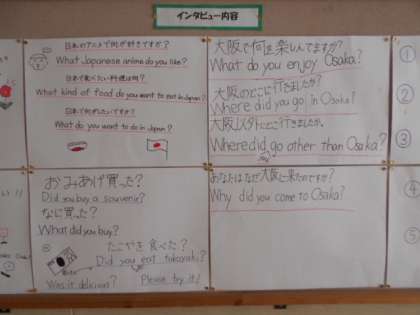 インタビュー内容
日本のアニメで何が好きですか？
What Japanese anime do you like?
日本で食べたい料理は何？
What kind of food do you want to eat in Japan?
日本で何がしたいですか？
What do you want to do in Japan?
大阪で何を楽しんでますか？
What do you enjoy Osaka?
大阪のどこに行きましたか？
Where did you go in Osaka?
大阪以外にどこ行きましたか。
Where did go other than Osaka?
①
②
③
おみあげ買った？
Did you buy a souvenir?
なに買った？
What did you buy?
たこやき食べた？
Did you eat takoyaki?
Was it delicious?
Please try it!
あなたはなぜ大阪に来たのですか？
Why did you come to Osaka?
④
⑤